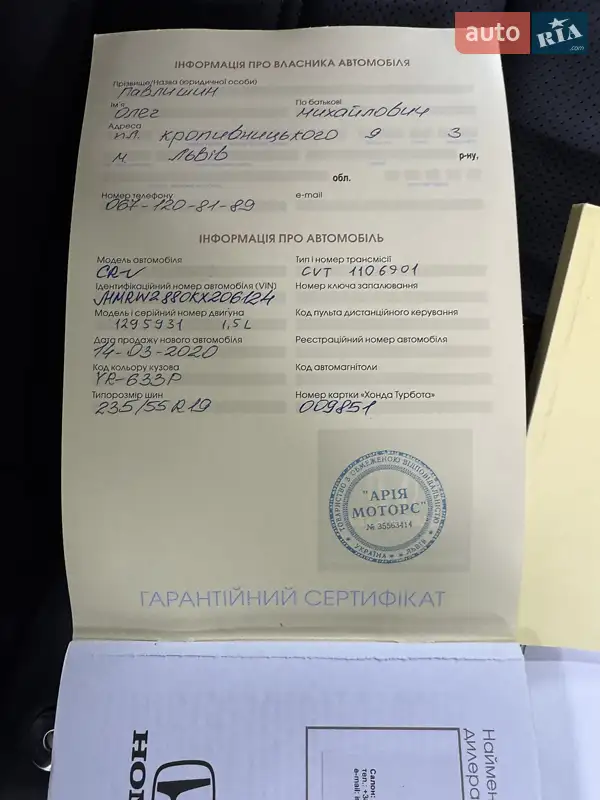 auto RIA .com
ІНФОРМАЦІЯ ПРО ВЛАСНИКА АВТОМОБІЛЯ
Прізвище/Назва (юридичної особи)
Павлишин
Ім'я По батькові
Олег Михайлович
Адреса
пл. Кропивницького 9 3
м Львів р-ну,
обл.
Номер телефону e-mail
067-120-81-89
ІНФОРМАЦІЯ ПРО АВТОМОБІЛЬ
Модель автомобіля Тип і номер трансмісії
CR-V CVT 1106901
Ідентифікаційний номер автомобіля (VIN) Номер ключа запалювання
AHMRW2880KX206124
Модель і серійний номер двигуна Код пульта дистанційного керування
1295931 1,5 L
Дата продажу нового автомобіля Реєстраційний номер автомобіля
14-03-2020
Код кольору кузова Код автомагнітоли
YR-633P
Типорозмір шин Номер картки «Хонда Турбота»
235/55 R19 009851
ТОВАРИСТВО З ОБМЕЖЕНОЮ ВІДПОВІДАЛЬНІСТЮ
"АРІЯ
МОТОРС"
№ 35563414
* УКРАЇНА * * ЛЬВІВ *
ГАРАНТІЙНИЙ СЕРТИФІКАТ
HON
Наймен
дилера
Салон:
тел.: +3
e-mail: i